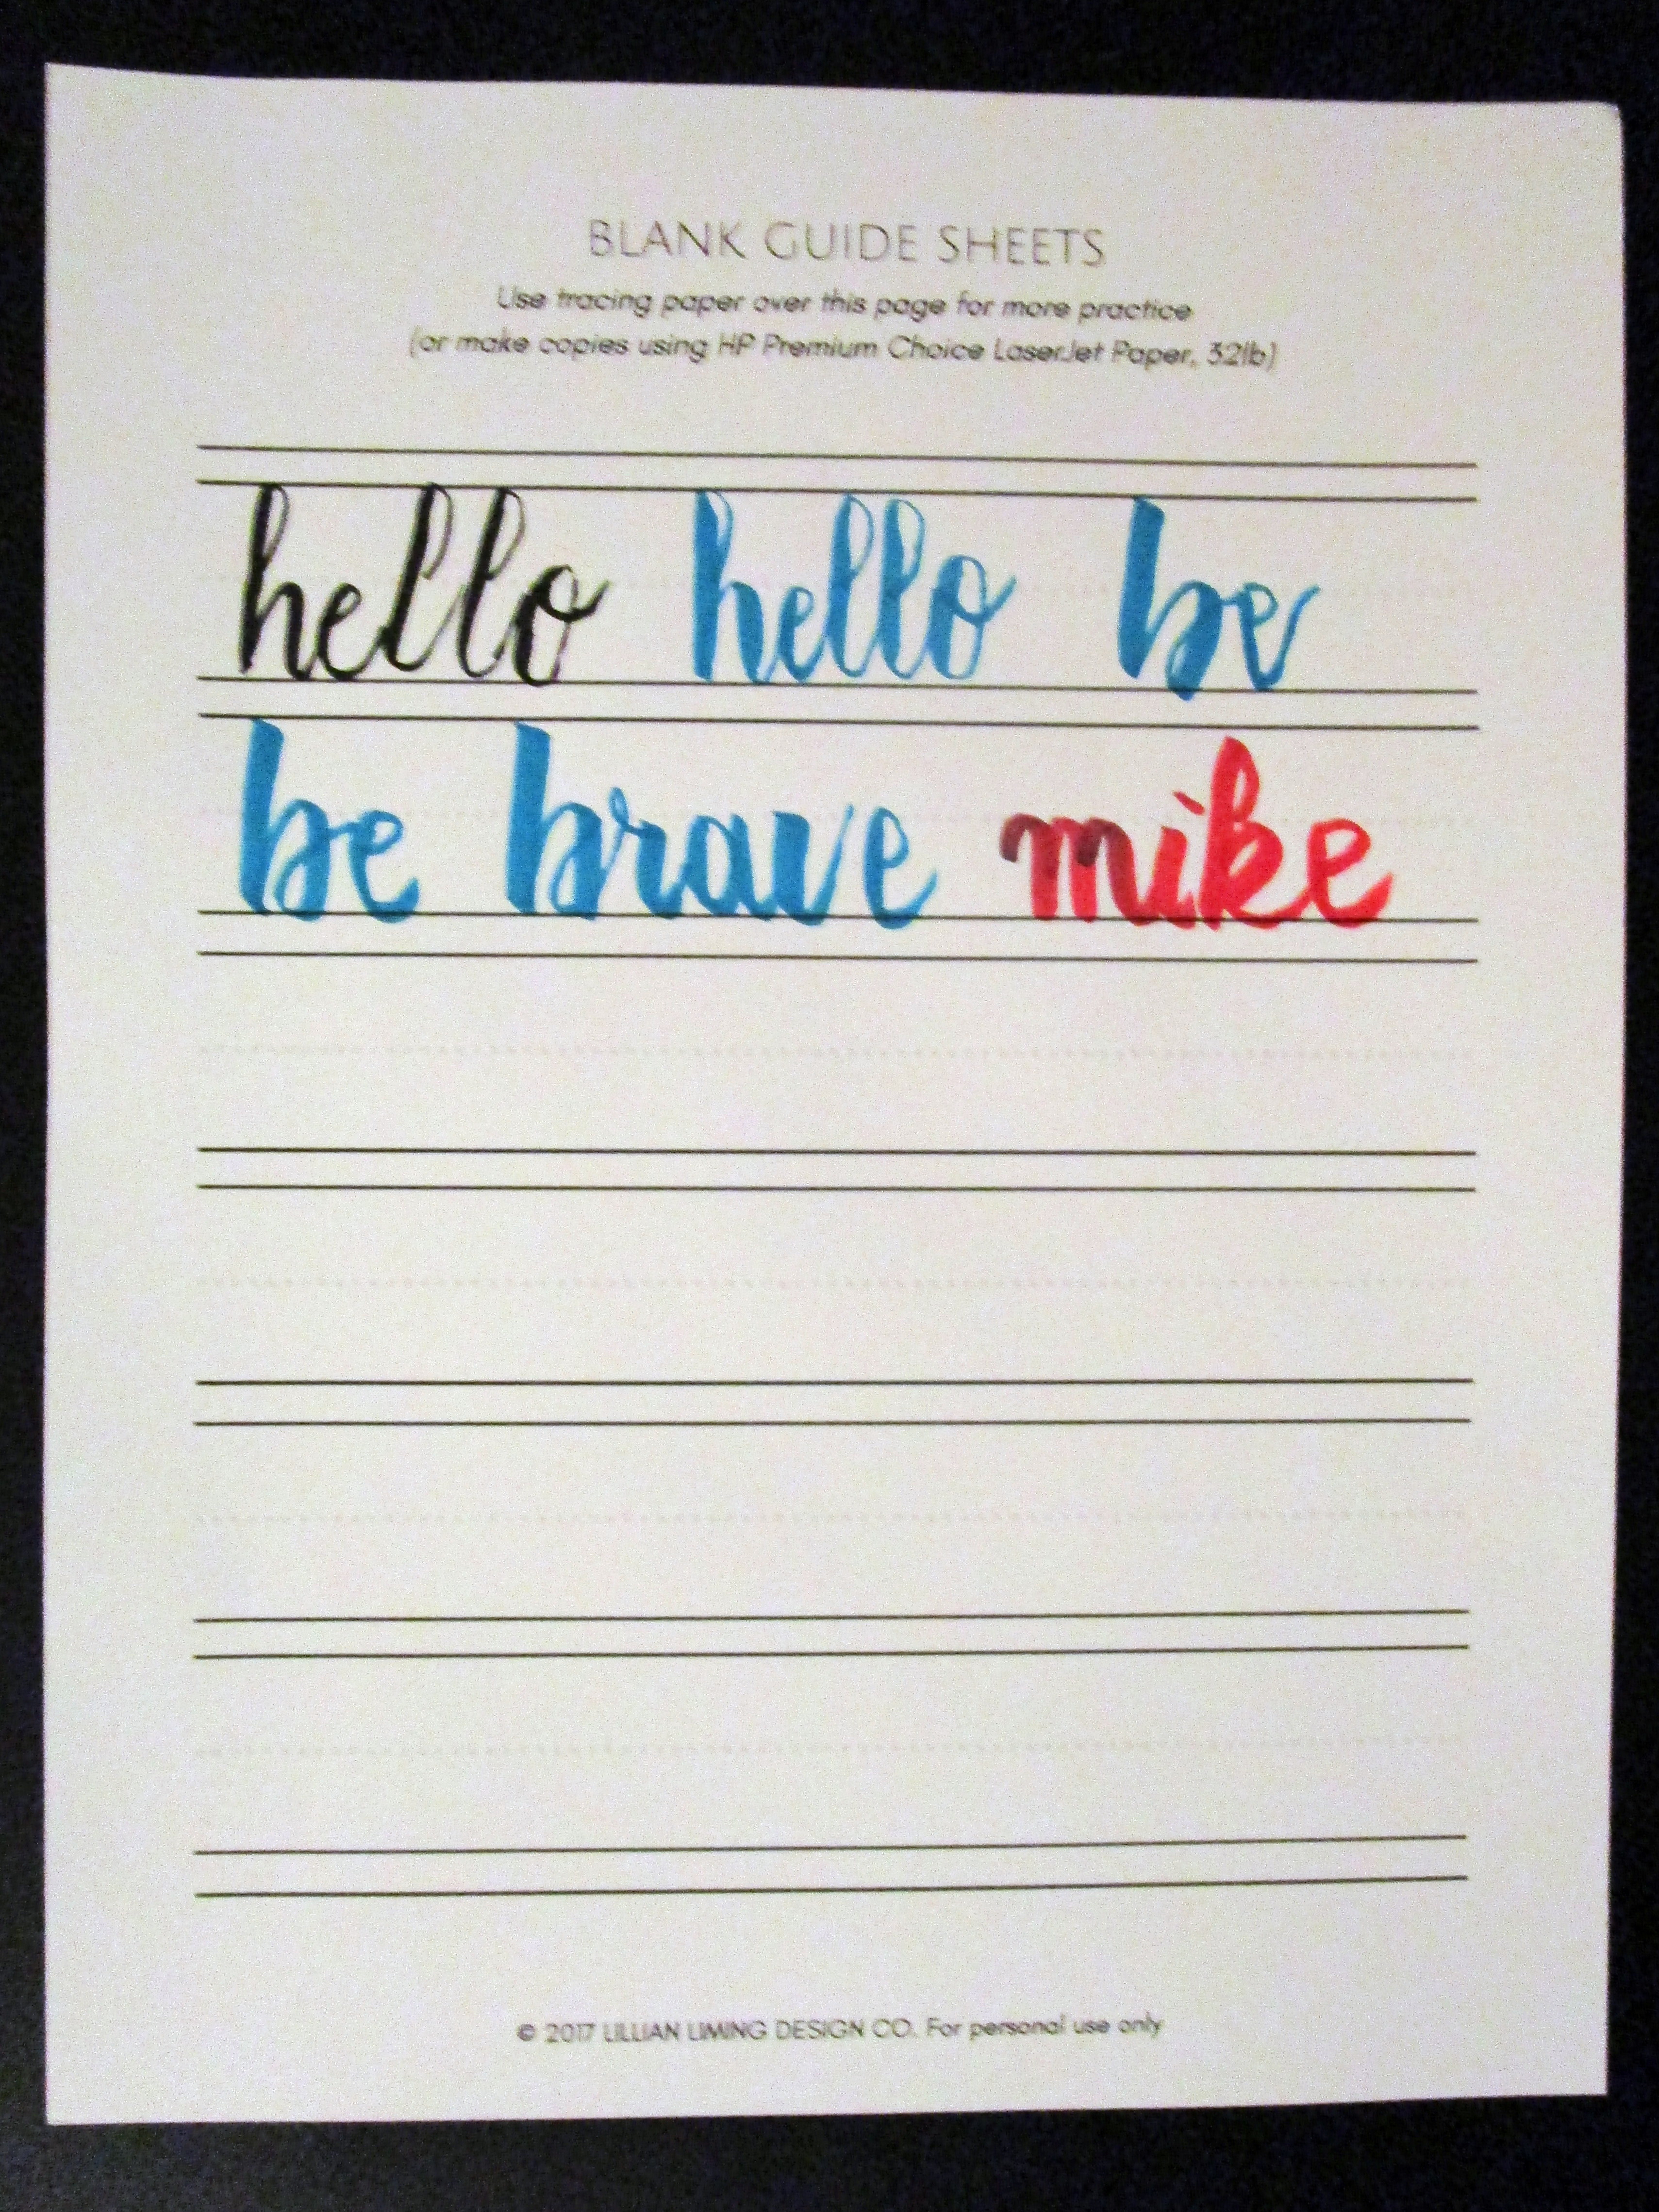 BLANK GUIDE SHEETS
Use tracing paper over this page for more practice
(or make copies using HP Premium Choice LaserJet Paper, 32lb)
hello hello be
be brave mike
© 2017 LILLIAN LIMING DESIGN CO. For personal use only